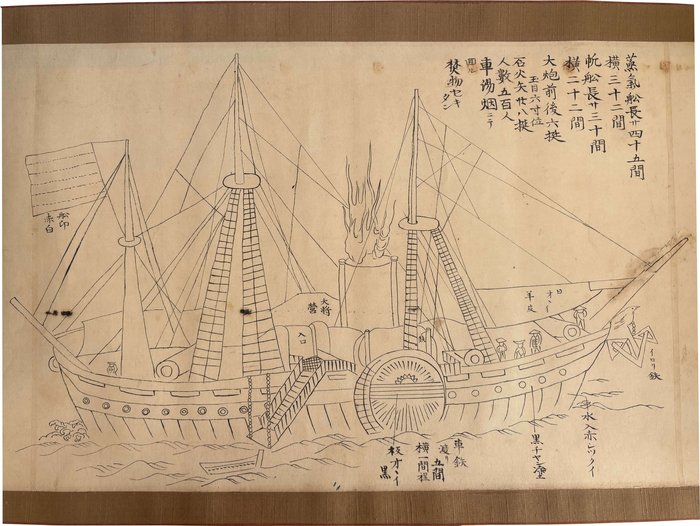 蒸氣舩長サ四十五間
横三十二間
帆舩長サ三十間
横二十二間
大炮前後六挺
玉目六寸位
石火矢廿八挺
人数五百人
車湯烟ニテ
囬ル
焚物セキ
タン
舩印
赤白
大将
営
入口
日オヽイ
羊皮
イカリ鉄
水入赤
黒チヤン塗
車鉄
渡リ五間
横一間程
板オヽイ
黒